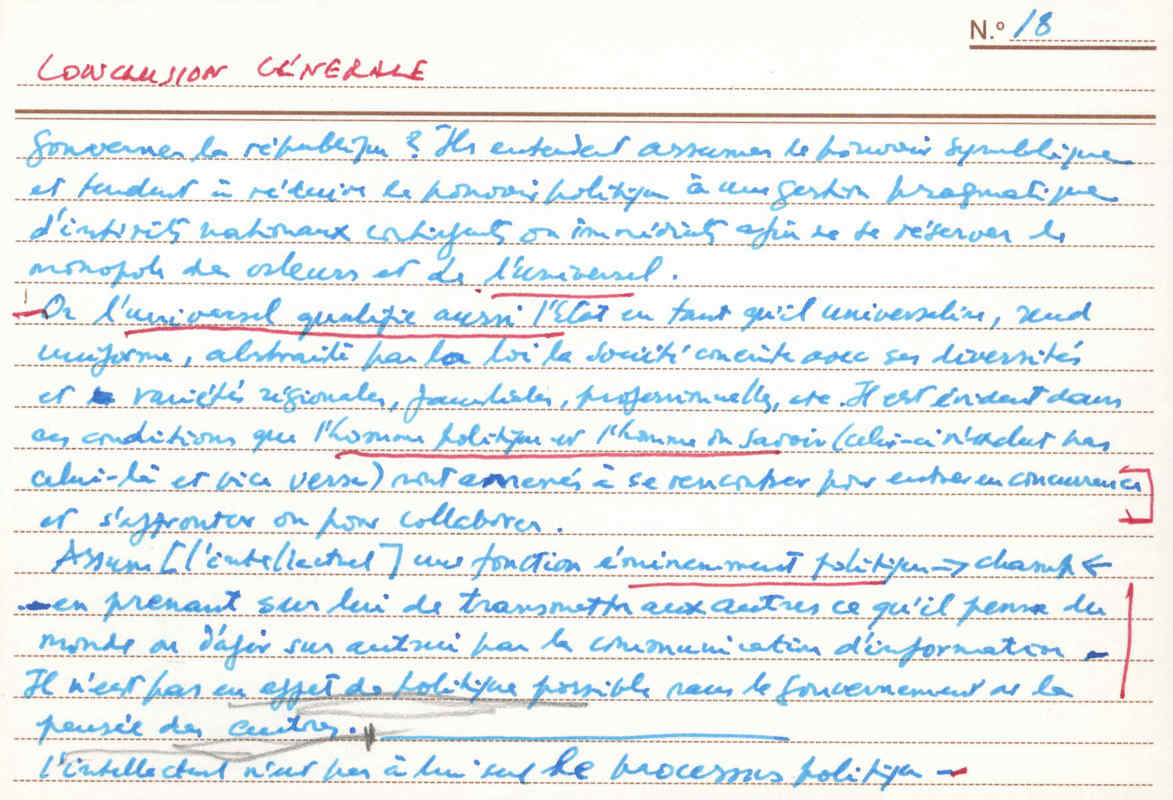 N.º 18
CONCLUSION GÉNÉRALE
Gouverner la république ? Ils entendent assumer le pouvoir symbolique
et tendent à réduire le pouvoir politique à une gestion pragmatique
d'intérêts nationaux contingents ou immédiats afin de se réserver le
monopole des valeurs et de l'universel.
Or l'universel qualifie aussi l'Etat en tant qu'il universalise, rend
uniforme, abstraite par la loi la société concrète avec ses diversités
et variétés régionales, familiales, professionnelles, etc. Il est évident dans
ces conditions que l'homme politique et l'homme du savoir (celui-ci n'exclut pas
celui-là et vice versa) sont amenés à se rencontrer pour entrer en concurrence
et s'affronter ou pour collaborer.
Assume [l'intellectuel] une fonction éminemment politique → champ ←
- en prenant sur lui de transmettre aux autres ce qu'il pense du
monde ou d'agir sur autrui par la communication d'information -
Il n'est pas en effet de politique possible sans le gouvernement de la
pensée des autres.
l'intellectuel n'est pas à lui seul le processus politique -